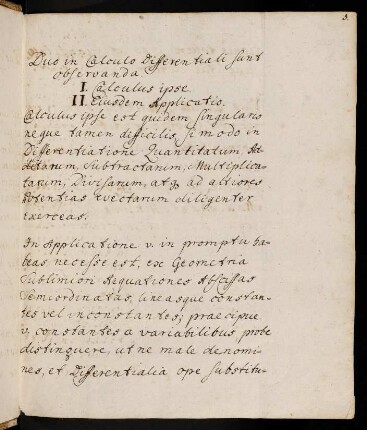 3.
Duo in Calculo Differentiali sunt
observanda.
I. Calculus ipse
II. Ejusdem Applicatio.
Calculus ipse est quidem singularis
neque tamen difficilis, si modo in
Differentiatione Quantitatum Ad-
ditarum, Subtractarum, Multiplica-
tarum, Divisarum, atq ad altiores
Potentias evectarum diligenter
exerceas.
In Applicatione v. in promptu ha-
beas necesse est, ex Geometria
Sublimiori Aequationes Abscissas
Semiordinatas, lineasque constan-
tes vel inconstantes; praecipue
v. constantes a variabilibus probe
distinguere, ut ne male denomi-
nes, et Differentialia ope substitu-